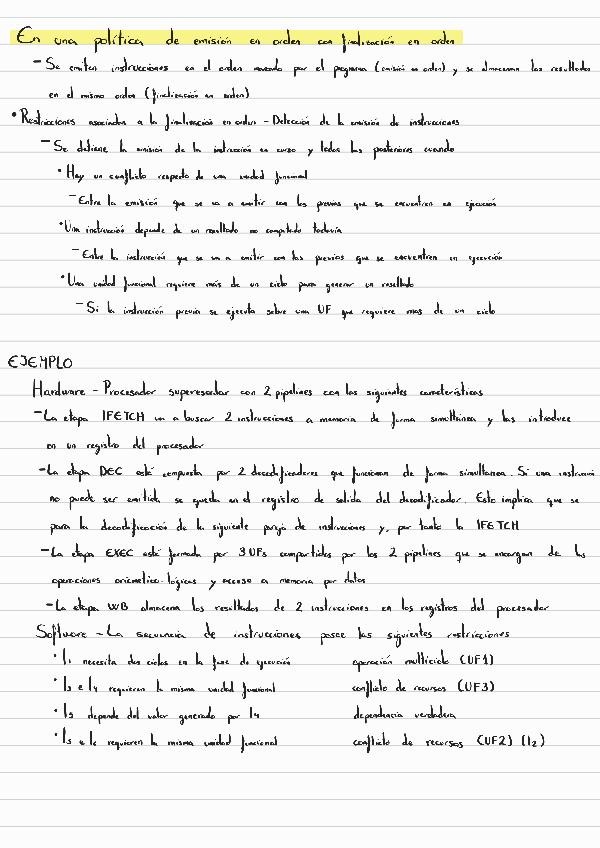 En una política de emisión en orden con finalización en orden
- Se emiten instrucciones en el orden marcado por el programa (emisión en orden) y se almacenan los resultados
en el mismo orden (finalización en orden)
• Restricciones asociadas a la finalización en orden - Detección de la emisión de instrucciones
- Se detiene la emisión de la instrucción en curso y todas las posteriores cuando
• Hay un conflicto respecto de una unidad funcional
- Entre la emisión que se va a emitir con las previas que se encuentren en ejecución
• Una instrucción depende de un resultado no computado todavía
- Entre la instrucción que se va a emitir con las previas que se encuentren en ejecución
• Una unidad funcional requiere más de un ciclo para generar un resultado
- Si la instrucción previa se ejecuta sobre una UF que requiere mas de un ciclo
EJEMPLO
Hardware - Procesador superescalar con 2 pipelines con las siguientes características
- La etapa IFETCH va a buscar 2 instrucciones a memoria de forma simultánea y las introduce
en un registro del procesador
- La etapa DEC está compuesta por 2 decodificadores que funcionan de forma simultanea. Si una instrucción
no puede ser emitida se queda en el registro de salida del decodificador. Esto implica que se
para la decodificación de la siguiente pareja de instrucciones y, por tanto la IFETCH
- La etapa EXEC está formada por 3 UFs compartidas por los 2 pipelines que se encargan de las
operaciones aritmetico-lógicas y acceso a memoria por datos
- La etapa WB almacena los resultados de 2 instrucciones en los registros del procesador
Software - La secuencia de instrucciones posee las siguientes restricciones
• I1 necesita dos ciclos en la fase de ejecución operación multiciclo (UF1)
• I3 e I4 requieren la misma unidad funcional conflicto de recursos (UF3)
• I5 depende del valor generado por I4 dependencia verdadera
• I5 e I6 requieren la misma unidad funcional conflicto de recursos (UF2) (I2)